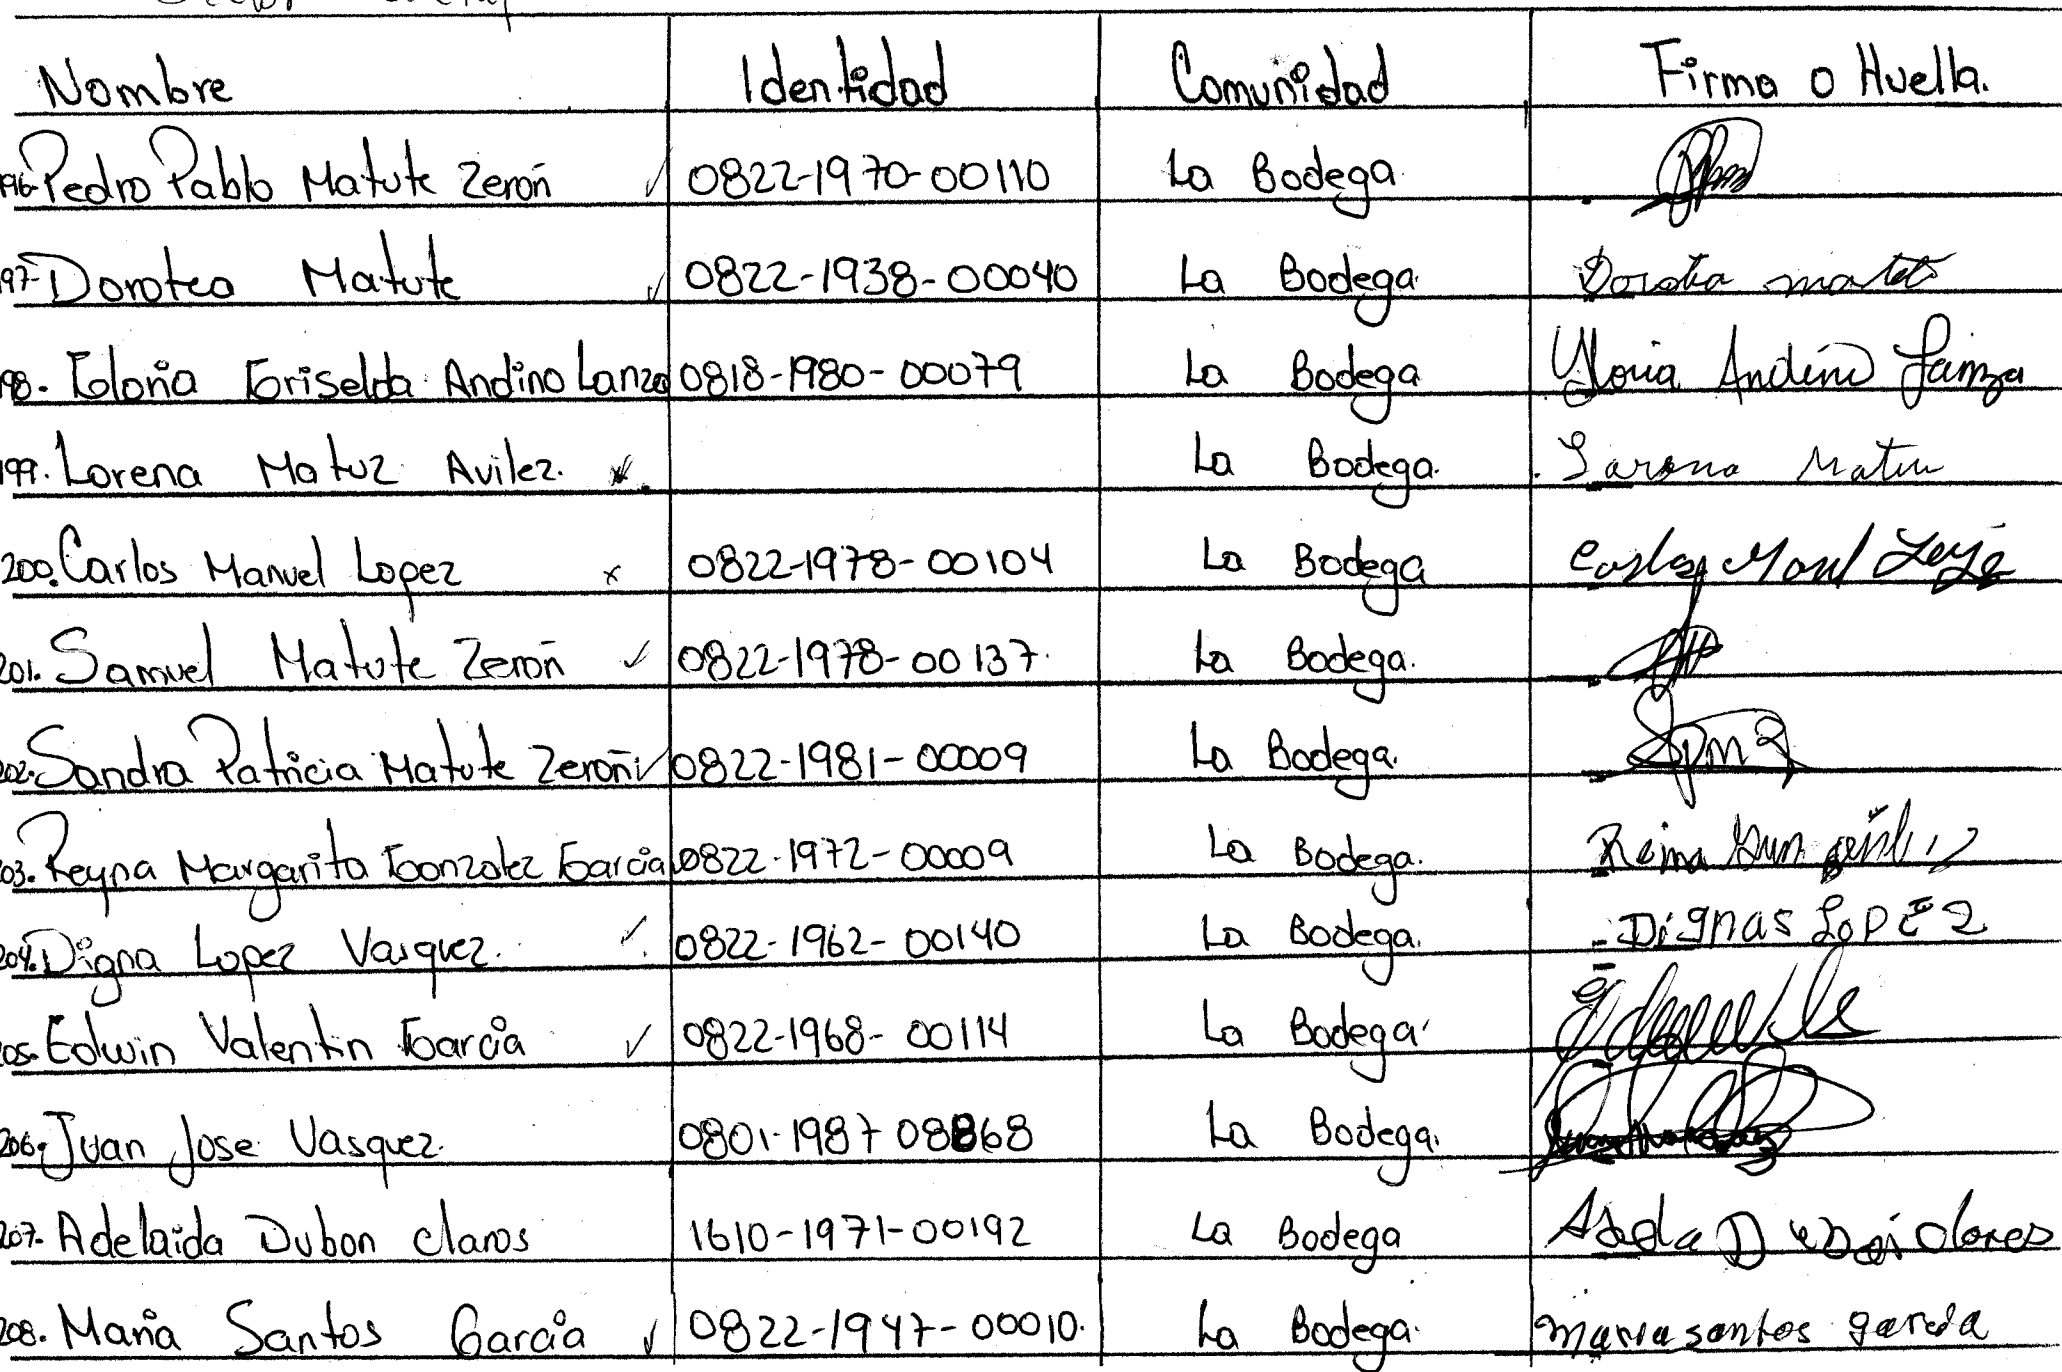 Nombre Identidad Comunidad Firma o Huella.
196- Pedro Pablo Matute Zerón 0822-1970-00110 La Bodega
197- Doroteo Matute 0822-1938-00040 La Bodega. Dorotea
198. Gloria Griselda Andino Lanza 0818-1980-00079 La Bodega Gloria Andino Lanza
199. Lorena Matuz Avilez. La Bodega.
200. Carlos Manuel Lopez x 0822-1978-00104 La Bodega Carlos
201. Samuel Matute Zerón 0822-1978-00137. La Bodega.
202. Sandra Patricia Matute Zerón 0822-1981-00009 La Bodega.
203. Reyna Margarita Gonzalez Garcia 0822-1972-00009 La Bodega. Reina
204. Digna Lopez Vasquez. 0822-1962-00140 La Bodega. Dignas LOPEZ
205. Edwin Valentin Garcia 0822-1968-00114 La Bodega
206. Juan Jose Vasquez. 0801-1987 08868 La Bodega.
207. Adelaida Dubon Claros 1610-1971-00192 La Bodega
208. Maria Santos Garcia 0822-1947-00010. La Bodega. maria santos garcia